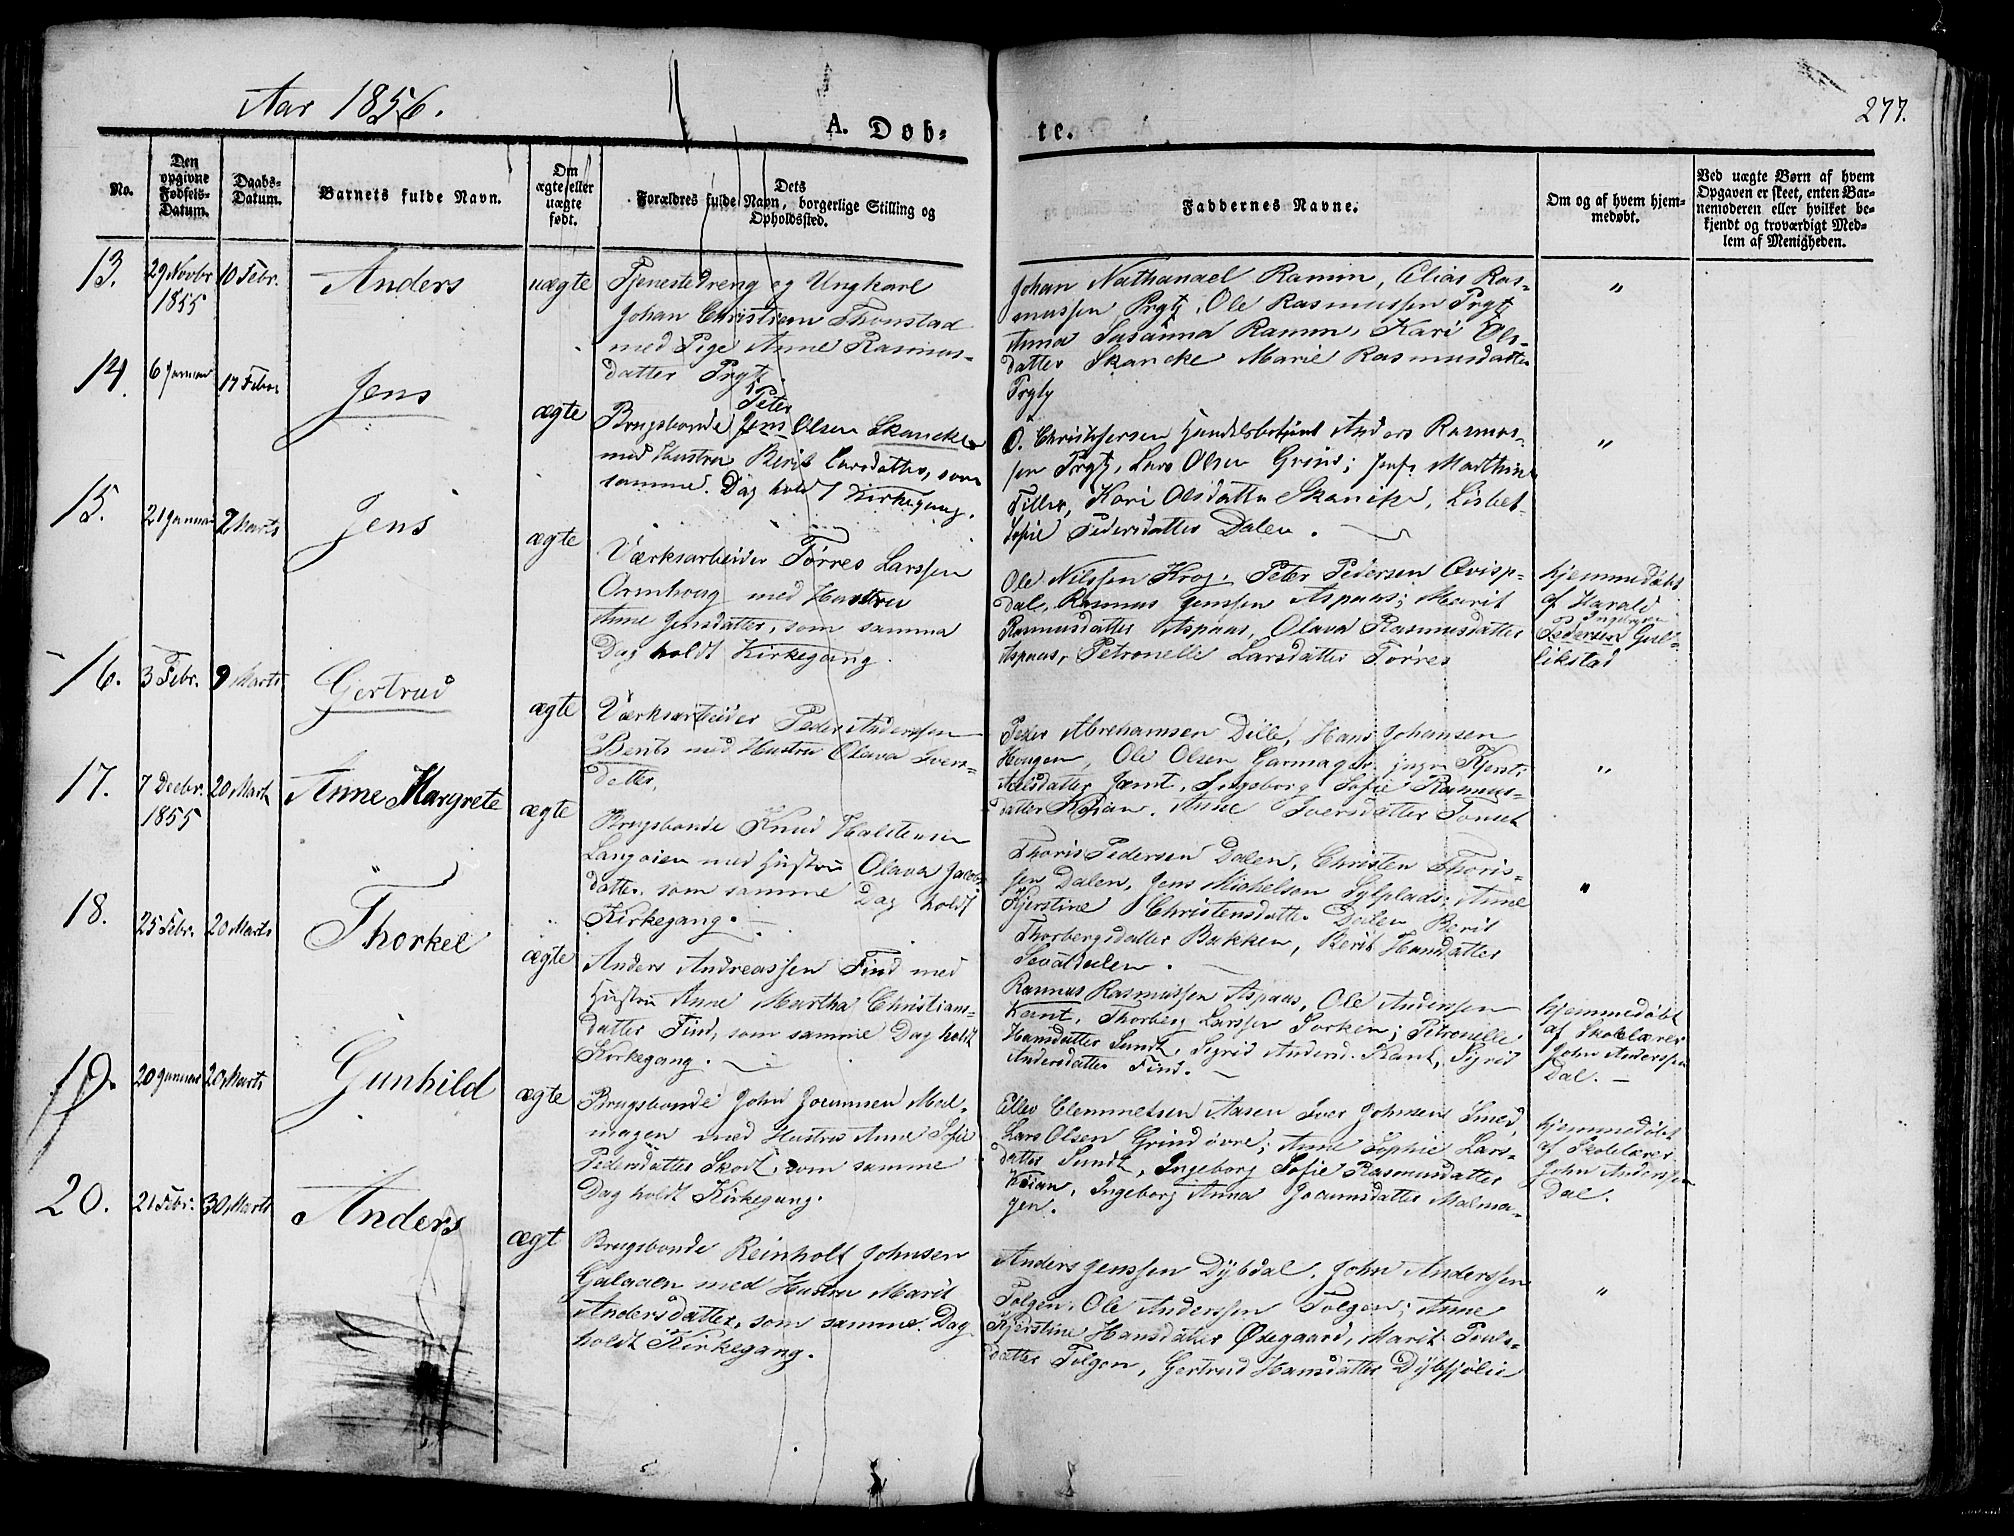 Aar 1856.
277.
A. Døb-
te.
No.
Den opgivne Fødsels-Datum.
Daabs-Datum.
Barnets fulde Navn.
Om ægte eller uægte født.
Dets
Forældres fulde Navn, borgerlige Stilling og
Opholdssted.
Faddernes Navne.
Om og af hvem hjem-
medøbt.
Ved uægte Børn af hvem
Opgaven er skeet, enten Bar-
nemoderen eller hvilket be-
kjendt og troværdigt Med-
lem af Menigheden.
13.
29 Novbr
1855
10 Febr.
Anders
uægte
Tjenestedreng og Ungkarl
Johan Christian Thonstad
med Pige Anne Rasmus-
datter Prytz.
Johan Nathanael Ramm, Elias Ras-
mussen Prytz, Ole Rasmussen Prytz
Anna Susanna Ramm, Kari Ols-
datter Skancke Marie Rasmusdatter
Prytz
"
14.
6 Januar
17 Febr.
Jens
ægte
Peter
Brugsbonde Jens Olsen Skancke
med Hustru Berit Larsdatter, som
samme Dag holdt Kirkegang.
O. Christophersen Handelsbetjent Anders Rasmus-
sen Prytz, Lars Olsen Grind; Jomfr Marthine
Tiller, Kari Olsdatter Skancke, Lisbet
Sofie Pedersdatter Dalen.
"
15.
21 Januar
2 Marts
Jens
ægte
Værksarbeider Tørres Larssen
Ormhaug med Hustru
Anne Jensdatter, som samme
Dag holdt Kirkegang.
Ole Nilssen Krog, Peter Pedersen Qvisp-
dal, Rasmus Jenssen Aspaas; Marit
Rasmusdatter Aspaas, Olava Rasmusdatter
Aspaas, Petronelle Larsdatter Tørres
hjemmedøbt
af Harald
Ingebrigtsen
Pedersen Gul-
likstad
16.
3 Febr.
9 Marts
Gertrud
ægte
Værksarbeider Peder Anderssen
Bents med Hustru Olava Iver-
datter.
Peder Abrahamsen Dille, Hans Johansen
Haugen, Ole Olsen Garmager; Kjersti
Nilsdatter Jæmt, Ingeborg Sofie Rasmus-
datter Kojan, Anne Iversdatter Tonset
"
17.
7 Decbr.
1855
20 Marts
Anne Margrete
ægte
Brugsbonde Knud Halstensen
Langøien med Hustru Olava Jacobs-
datter, som samme Dag holdt
Kirkegang.
Thoris Pedersen Dalen, Christen Thoris-
sen Dalen, Jens Michelsen Sylplads; Anne
Kjerstine Christensdatter Dalen Berit
Thorbergsdatter Bakken, Berit Hansdatter
Sevatdalen.
"
18.
25 Febr.
20 Marts
Thorkel
ægte
Anders Andreassen Find med
Hustru Anne Martha Christians-
datter Find, som samme Dag holdt
Kirkegang.
Rasmus Rasmussen Aspaas, Ole Anderssen
Kant, Thorberg Larssen Sorken; Petronelle
Hansdatter Sundt, Sigrid Andersd. Kant, Sigrid
Andersdatter Find.
hjemmedøbt
af Skolelærer
John Anderssen
Dal.
19.
20 Januar
20 Marts
Gunhild
ægte
Brugsbonde John Joramsen Mal-
magen med Hustru Anne Sofie
Pedersdatter Skott, som samme
Dag holdt Kirkegang.
Ellev Clemmetsen Aasen Iver Johnsen Smed,
Lars Olsen Grind øvre; Anne Sophie Lars-
datter Sundt, Ingeborg Sofie Rasmusdatter
Kojan, Ingeborg Anna Joramsdatter Malma-
gen.
hjemmedøbt
af Skolelærer
John Anderssen
Dal.
20.
21 Febr.
30 Marts
Anders
ægt
Brugsbonde Reinholt Johnsen
Galaaen med Hustru Marit
Andersdatter, som samme Dag
holdt Kirkegang.
Anders Jenssen Dybdal, John Anderssen
Tolgen, Ole Anderssen Tolgen; Anne
Kjerstine Hansdatter Ødegaard, Marit Pouls-
datter Tolgen, Gertrud Hansdatter Dybsjølie
"